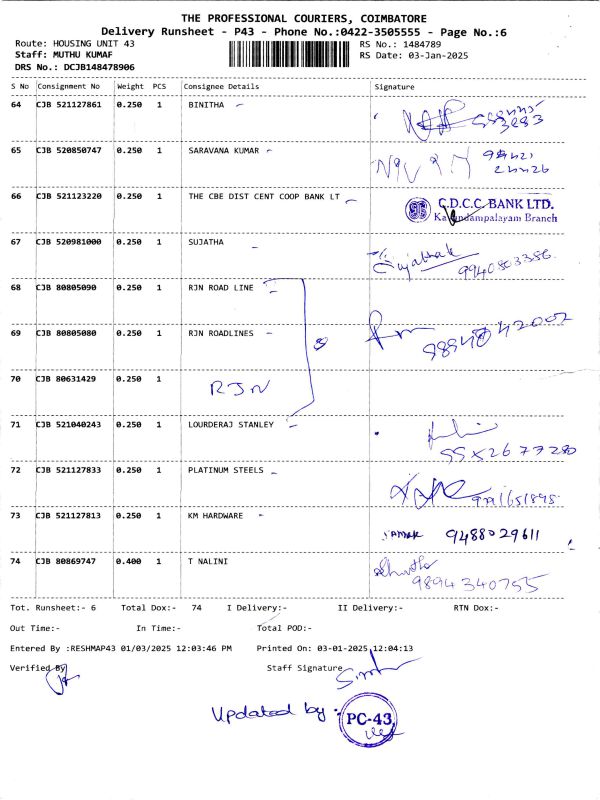 THE PROFESSIONAL COURIERS, COIMBATORE
Delivery Runsheet - P43 - Phone No.:0422-3505555 - Page No.:6
Route: HOUSING UNIT 43 RS No.: 1484789
Staff: MUTHU KUMAF RS Date: 03-Jan-2025
DRS No.: DCJB148478906
S No Consignment No Weight PCS Consignee Details Signature
64 CJB 521127861 0.250 1 BINITHA
65 CJB 520850747 0.250 1 SARAVANA KUMAR
66 CJB 521123220 0.250 1 THE CBE DIST CENT COOP BANK LT C.D.C.C. BANK LTD.
Branch
67 CJB 520981000 0.250 1 SUJATHA
9940803386
68 CJB 80805090 0.250 1 RJN ROAD LINE
69 CJB 80805080 0.250 1 RJN ROADLINES
70 CJB 80631429 0.250 1 RJN
71 CJB 521040243 0.250 1 LOURDERAJ STANLEY
72 CJB 521127833 0.250 1 PLATINUM STEELS
73 CJB 521127813 0.250 1 KM HARDWARE 9488029611
74 CJB 80869747 0.400 1 T NALINI
9894340755
Tot. Runsheet:- 6 Total Dox:- 74 I Delivery:- II Delivery:- RTN Dox:-
Out Time:- In Time:- Total POD:-
Entered By :RESHMAP43 01/03/2025 12:03:46 PM Printed On: 03-01-2025 12:04:13
Verified By Staff Signature
Updated by : PC-43